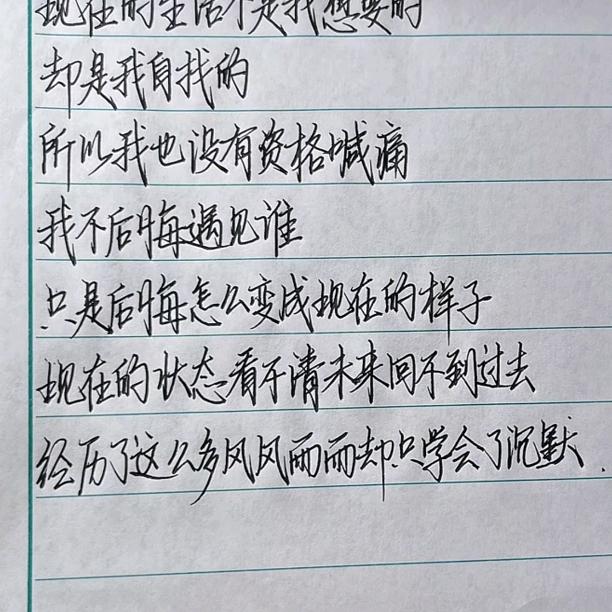 现在的生活不是我想要的
却是我自找的
所以我也没有资格喊痛
我不后悔遇见谁
只是后悔怎么变成现在的样子
现在的状态看不清未来回不到过去
经历了这么多风风雨雨却只学会了沉默.